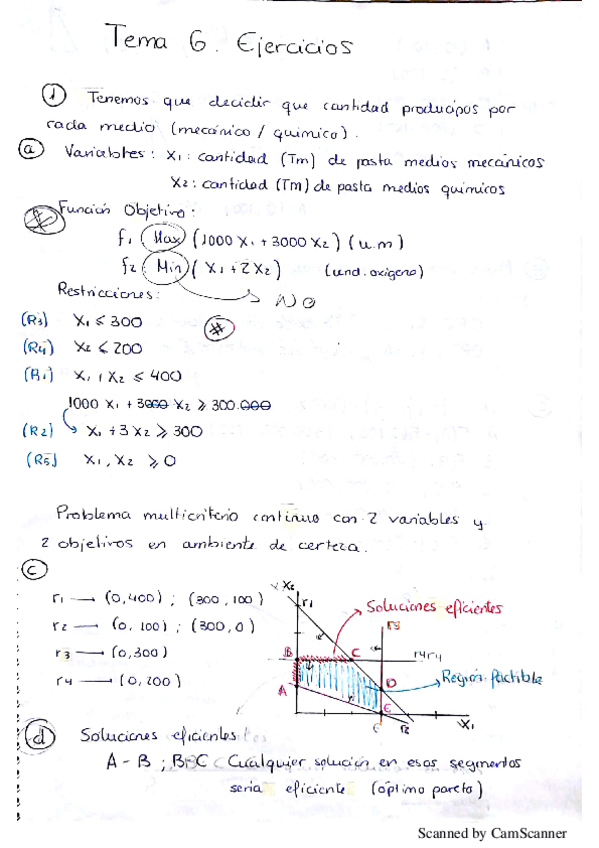 Tema 6. Ejercicios
① Tenemos que decidir que cantidad producipos por
cada medio (mecánico / quimico).
ⓐ Variables: X1: cantidad (Tm) de pasta medios mecánicos
X2: cantidad (Tm) de pasta medios quimicos
Función Objetivo:
f1 Max (1000 X1 + 3000 X2) (u.m)
f2: Min (X1 + 2X2) (und. oxigeno)
Restricciones: NO
(R3) X1 ≤ 300 #
(R4) X2 ≤ 200
(R1) X1 + X2 ≤ 400
1000 X1 + 3000 X2 ≥ 300.000
(R2) X1 + 3X2 ≥ 300
(R5) X1, X2 ≥ 0
Problema multicriterio continuo con 2 variables y
2 objetivos en ambiente de certeza.
ⓒ
r1 → (0,400) ; (300,100)
r2 → (0,100) ; (300,0)
r3 → (0,300)
r4 → (0,200)
X2
r1
Soluciones eficientes
r3
B C r4 r4
A D Región factible
E
r2 X1
ⓓ Soluciones eficientes
A - B ; B C Cualquier solución en esos segmentos
seria eficiente (óptimo pareto)
Scanned by CamScanner